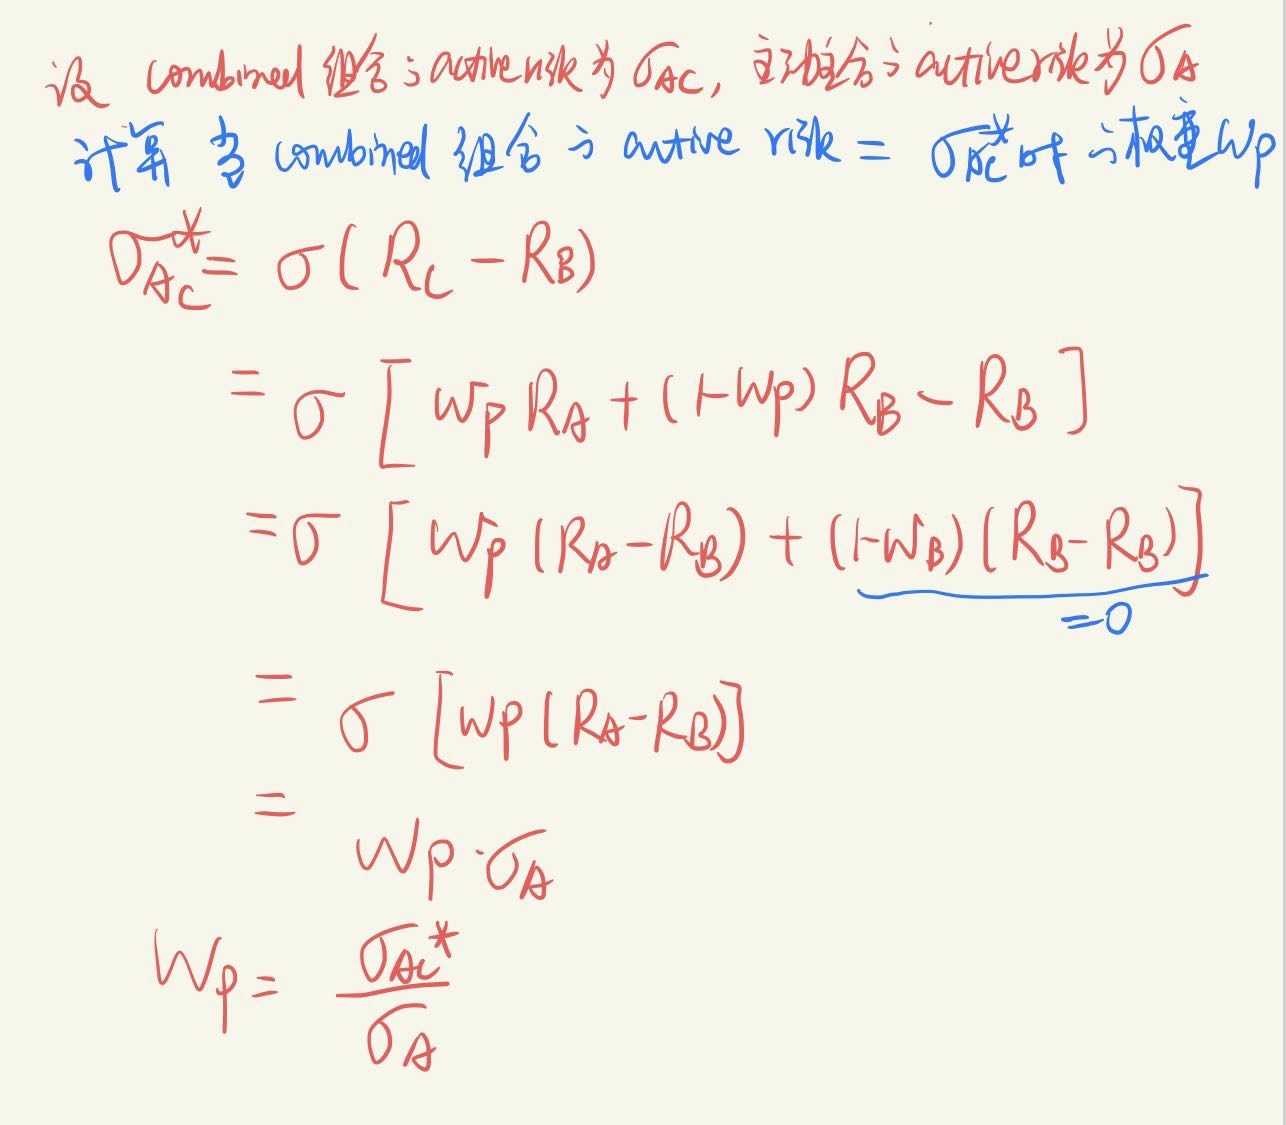 设 combined 组合之 active risk 为 σ_AC, 主动组合之 active risk 为 σ_A
计算 当 combined 组合之 active risk = σ_AC* 时之权重 Wp
σ_AC* = σ( R_C - R_B)
= σ [ Wp R_A + (1-Wp) R_B - R_B ]
= σ [ Wp (R_A - R_B) + (1-W_B) (R_B - R_B) ]
=0
= σ [Wp (R_A - R_B)]
= Wp · σ_A
Wp = σ_AC* / σ_A